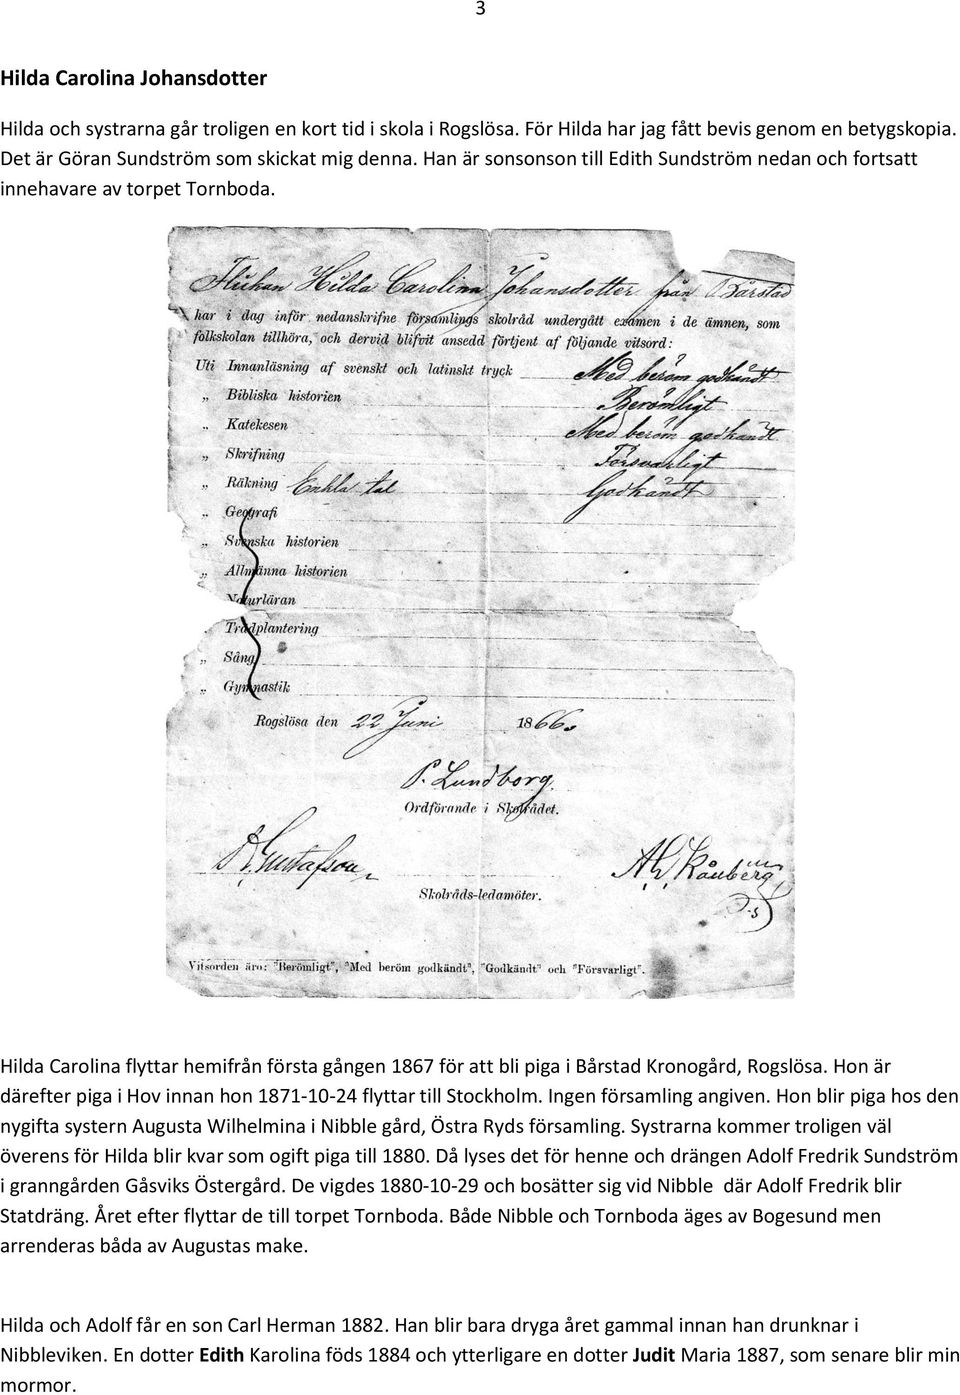 3
Hilda Carolina Johansdotter
Hilda och systrarna går troligen en kort tid i skola i Rogslösa. För Hilda har jag fått bevis genom en betygskopia.
Det är Göran Sundström som skickat mig denna. Han är sonsonson till Edith Sundström nedan och fortsatt
innehavare av torpet Tornboda.
Flickan Hilda Carolina Johansdotter från Bårstad
har i dag inför nedanskrifne församlings skolråd undergått examen i de ämnen, som
folkskolan tillhöra, och dervid blifvit ansedd förtjent af följande vitsord:
Uti Innanläsning af svenskt och latinskt tryck Med beröm godkändt
„ Bibliska historien Berömligt
„ Katekesen Med beröm godkändt
„ Skrifning Försvarligt
„ Räkning Enkla tal Godkändt
„ Geografi
„ Svenska historien
„ Allmänna historien
Naturläran
Trädplantering
„ Sång
„ Gymnastik
Rogslösa den 22 Juni 1866.
P. Lundborg.
Ordförande i Skolrådet.
Gustafson
Skolråds-ledamöter.
Vitsorden äro: "Berömligt", "Med beröm godkändt", "Godkändt" och "Försvarligt".
Hilda Carolina flyttar hemifrån första gången 1867 för att bli piga i Bårstad Kronogård, Rogslösa. Hon är
därefter piga i Hov innan hon 1871-10-24 flyttar till Stockholm. Ingen församling angiven. Hon blir piga hos den
nygifta systern Augusta Wilhelmina i Nibble gård, Östra Ryds församling. Systrarna kommer troligen väl
överens för Hilda blir kvar som ogift piga till 1880. Då lyses det för henne och drängen Adolf Fredrik Sundström
i granngården Gåsviks Östergård. De vigdes 1880-10-29 och bosätter sig vid Nibble där Adolf Fredrik blir
Statdräng. Året efter flyttar de till torpet Tornboda. Både Nibble och Tornboda äges av Bogesund men
arrenderas båda av Augustas make.
Hilda och Adolf får en son Carl Herman 1882. Han blir bara dryga året gammal innan han drunknar i
Nibbleviken. En dotter Edith Karolina föds 1884 och ytterligare en dotter Judit Maria 1887, som senare blir min
mormor.